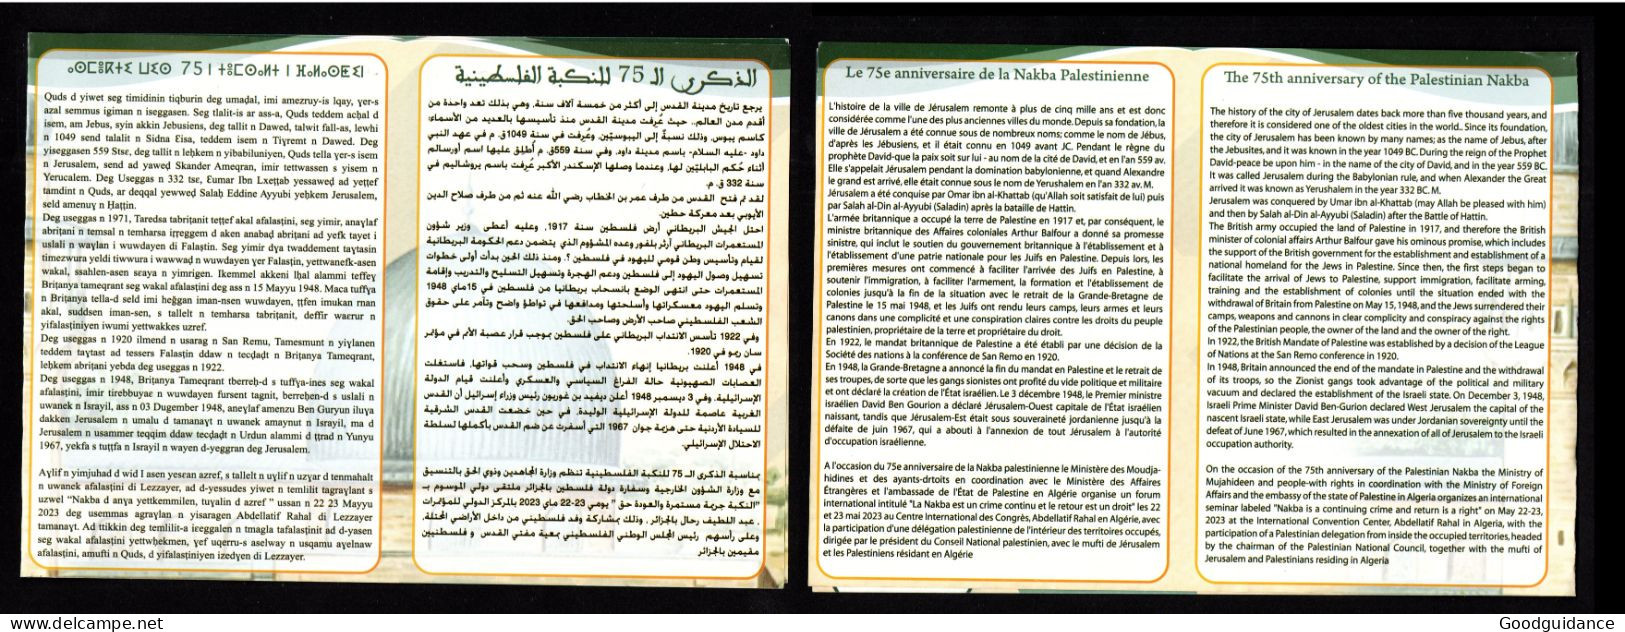 ⴰⵙⵎⴻⴽⵜⵉ ⵡⵉⵙ 75 ⵏ ⵜⵏⴻⵎⵔⴰⵍⵜ ⵏ ⴼⴰⵍⴰⵙⵟⵉⵏ
Quds d yiwet seg timidinin tiqburin deg umaḍal, imi amezruy-is lqay, ɣer-s
azal semmus igiman n iseggasen. Seg tlalit-is ar ass-a, Quds teddem achal d
isem, am Jebus, syin akkin Jebusiens, deg tallit n Dawed, talwit fall-as, lewhi
n 1049 send talalit n Sidna Ɛisa, teddem isem n Tiɣremt n Dawed. Deg
yiseggasen 559 Stsr, deg tallit n leḥkem n yibabiluniyen, Quds tella ɣer-s isem
n Jerusalem, send ad yaweḍ Skander Ameqran, imir tettwassen s yisem n
Yerucalem. Deg Useggas n 332 tsr, Ɛumar Ibn Lxeṭṭab yessaweḍ ad yeṭṭef
tamdint n Quds, ar deqqal yewweḍ Salaḥ Eddine Ayyubi yeḥkem Jerusalem,
seld amenuɣ n Ḥaṭṭin.
Deg useggas n 1971, Taredsa tabriṭanit teṭṭef akal afalasṭini, seg yimir, anaɣlaf
abriṭani n temsal n temharsa iṛṛeggem d aken anabaḍ abriṭani ad yefk tayet i
uslali n waɣlan i wuwdayen di Falasṭin. Seg yimir dɣa twaddement taytasin
timezwura yeldi tiwwura i wawwaḍ n wuwdayen ɣer Falasṭin, yettwanefk-asen
wakal, ssahlen-asen sraya n yimrigen. Ikemmel akkeni lḥal alammi teffeɣ
Briṭanya tameqrant seg wakal afalasṭini deg ass n 15 Mayyu 1948. Maca tuffɣa
n Briṭanya tella-d seld imi heggan iman-nsen wuwdayen, ṭṭfen imukan rnan
akal, suddsen iman-sen, s tallelt n temharsa tabriṭanit, deffir waɛrur n
yifalasṭiniyen iwumi yettwakkes uzref.
Deg useggas n 1920 ilmend n usarag n San Remu, Tamesmunt n yiɣlanen
teddem taɣtast ad tessers Falasṭin ddaw n tecḍaḍt n Briṭanya Tameqrant,
leḥkem abriṭani yebda deg useggas n 1922.
Deg useggas n 1948, Briṭanya Tameqrant tberreḥ-d s tuffɣa-ines seg wakal
afalasṭini, imir tirebbuyae n wuwdayen fursent tagnit, berreḥen-d s uslali n
uwanek n Israyil, ass n 03 Dugember 1948, aneɣlaf amenzu Ben Guryun iluɣa
dakken Jerusalem n umalu d tamanaɣt n uwanek amaynut n Israyil, ma d
Jerusalem n usammer teqqim ddaw tecḍaḍt n Urdun alammi d ṭṭrad n Yunyu
1967, yekfa s tuṭṭfa n Israyil n wayen d-yeggran deg Jerusalem.
Aɣlif n yimjuhad d wid I asen yesran azref, s tallelt n uɣlif n uzɣar d tenmahalt
n uwanek afalasṭini di Lezzayer, ad d-yessudes yiwet n temlilit tagraɣlant s
uzwel "Nakba d anɣa yettkemmilen, tuɣalin d azref " ussan n 22 23 Mayyu
2023 deg usemmas agraɣlan n yisaragen Abdellatif Rahal di Lezzayer
tamanaɣt. Ad ttikkin deg temlilit-a ireggalen n tmagla tafalasṭinit ad d-yasen
seg wakal afalasṭini yettwḥekmen, ɣef uqerru-s aselway n usqamu aɣelnaw
afalasṭini, amufti n Quds, d yifalasṭiniyen izedɣen di Lezzayer.
الذكرى الـ 75 للنكبة الفلسطينية
يرجع تاريخ مدينة القدس إلى أكثر من خمسة آلاف سنة، وهي بذلك تعد واحدة من
أقدم مدن العالم.. حيث عُرفت مدينة القدس منذ تأسيسها بالعديد من الأسماء؛
كاسم يبوس، وذلك نسبةً إلى اليبوسيّين، وعُرفت في سنة 1049ق. م في عهد النبي
داود -عليه السلام- باسم مدينة داود، وفي سنة 559ق. م أُطلق عليها اسم أورسالم
أثناء حُكم البابليّين لها، وعندما وصلها الإسكندر الأكبر عُرفت باسم يروشاليم في
سنة 332 ق. م.
لقد تم فتح القدس من طرف عمر بن الخطاب رضي الله عنه ثم من طرف صلاح الدين
الأيوبي بعد معركة حطين.
احتل الجيش البريطاني أرض فلسطين سنة 1917، وعليه أعطى وزير شؤون
المستعمرات البريطاني آرثر بلفور وعده المشؤوم الذي يتضمن دعم الحكومة البريطانية
لقيام وتأسيس وطن قومي لليهود في فلسطين ؟. ومنذ ذلك الحين بدأت أولى خطوات
تسهيل وصول اليهود إلى فلسطين ودعم الهجرة وتسهيل التسليح والتدريب وإقامة
المستعمرات حتى انتهى الوضع بانسحاب بريطانيا من فلسطين في 15ماي 1948
وتسلم اليهود معسكراتها وأسلحتها ومدافعها في تواطؤ واضح وتآمر على حقوق
الشعب الفلسطيني صاحب الأرض وصاحب الحق.
وفي 1922 تأسس الانتداب البريطاني على فلسطين بموجب قرار عصبة الأمم في مؤتمر
سان ريمو في 1920.
في 1948 أعلنت بريطانيا إنهاء الانتداب في فلسطين وسحب قواتها، فاستغلت
العصابات الصهيونية حالة الفراغ السياسي والعسكري وأعلنت قيام الدولة
الإسرائيلية، وفي 3 ديسمبر 1948 أعلن ديفيد بن غوريون رئيس وزراء إسرائيل أن القدس
الغربية عاصمة للدولة الإسرائيلية الوليدة، في حين خضعت القدس الشرقية
للسيادة الأردنية حتى هزيمة جوان 1967 التي أسفرت عن ضم القدس بأكملها لسلطة
الاحتلال الإسرائيلي.
بمناسبة الذكرى الـ 75 للنكبة الفلسطينية تنظم وزارة المجاهدين وذوي الحق بالتنسيق
مع وزارة الشؤون الخارجية وسفارة دولة فلسطين بالجزائر ملتقى دولي الموسوم بـ
"النكبة جريمة مستمرة والعودة حق " يومي 22-23 ماي 2023 بالمركز الدولي للمؤتمرات
، عبد اللطيف رحال بالجزائر، وذلك بمشاركة وفد فلسطيني من داخل الأراضي المحتلة،
وعلى رأسهم رئيس المجلس الوطني الفلسطيني بمعية مفتي القدس و فلسطينيين
مقيمين بالجزائر
Le 75e anniversaire de la Nakba Palestinienne
L'histoire de la ville de Jérusalem remonte à plus de cinq mille ans et est donc
considérée comme l'une des plus anciennes villes du monde. Depuis sa fondation, la
ville de Jérusalem a été connue sous de nombreux noms; comme le nom de Jébus,
d'après les Jébusiens, et il était connu en 1049 avant JC. Pendant le règne du
prophète David-que la paix soit sur lui - au nom de la cité de David, et en l'an 559 av.
Elle s'appelait Jérusalem pendant la domination babylonienne, et quand Alexandre
le grand est arrivé, elle était connue sous le nom de Yerushalem en l'an 332 av. M.
Jérusalem a été conquise par Omar ibn al-Khattab (qu'Allah soit satisfait de lui) puis
par Salah al-Din al-Ayyubi (Saladin) après la bataille de Hattin.
L'armée britannique a occupé la terre de Palestine en 1917 et, par conséquent, le
ministre britannique des Affaires coloniales Arthur Balfour a donné sa promesse
sinistre, qui inclut le soutien du gouvernement britannique à l'établissement et à
l'établissement d'une patrie nationale pour les Juifs en Palestine. Depuis lors, les
premières mesures ont commencé à faciliter l'arrivée des Juifs en Palestine, à
soutenir l'immigration, à faciliter l'armement, la formation et l'établissement de
colonies jusqu'à la fin de la situation avec le retrait de la Grande-Bretagne de
Palestine le 15 mai 1948, et les Juifs ont rendu leurs camps, leurs armes et leurs
canons dans une complicité et une conspiration claires contre les droits du peuple
palestinien, propriétaire de la terre et propriétaire du droit.
En 1922, le mandat britannique de Palestine a été établi par une décision de la
Société des nations à la conférence de San Remo en 1920.
En 1948, la Grande-Bretagne a annoncé la fin du mandat en Palestine et le retrait de
ses troupes, de sorte que les gangs sionistes ont profité du vide politique et militaire
et ont déclaré la création de l'État israélien. Le 3 décembre 1948, le Premier ministre
israélien David Ben Gourion a déclaré Jérusalem-Ouest capitale de l'État israélien
naissant, tandis que Jérusalem-Est était sous souveraineté jordanienne jusqu'à la
défaite de juin 1967, qui a abouti à l'annexion de tout Jérusalem à l'autorité
d'occupation israélienne.
A l'occasion du 75e anniversaire de la Nakba palestinienne le Ministère des Moudja-
hidines et des ayants-drtoits en coordination avec le Ministère des Affaires
Étrangères et l'ambassade de l'État de Palestine en Algérie organise un forum
international intitulé "La Nakba est un crime continu et le retour est un droit" les 22
et 23 mai 2023 au Centre International des Congrès, Abdellatif Rahal en Algérie, avec
la participation d'une délégation palestinienne de l'intérieur des territoires occupés,
dirigée par le président du Conseil National palestinien, avec le mufti de Jérusalem
et les Palestiniens résidant en Algérie
The 75th anniversary of the Palestinian Nakba
The history of the city of Jerusalem dates back more than five thousand years, and
therefore it is considered one of the oldest cities in the world.. Since its foundation,
the city of Jerusalem has been known by many names; as the name of Jebus, after
the Jebusites, and it was known in the year 1049 BC. During the reign of the Prophet
David-peace be upon him - in the name of the city of David, and in the year 559 BC.
It was called Jerusalem during the Babylonian rule, and when Alexander the Great
arrived it was known as Yerushalem in the year 332 BC. M.
Jerusalem was conquered by Umar ibn al-Khattab (may Allah be pleased with him)
and then by Salah al-Din al-Ayyubi (Saladin) after the Battle of Hattin.
The British army occupied the land of Palestine in 1917, and therefore the British
minister of colonial affairs Arthur Balfour gave his ominous promise, which includes
the support of the British government for the establishment and establishment of a
national homeland for the Jews in Palestine. Since then, the first steps began to
facilitate the arrival of Jews to Palestine, support immigration, facilitate arming,
training and the establishment of colonies until the situation ended with the
withdrawal of Britain from Palestine on May 15, 1948, and the Jews surrendered their
camps, weapons and cannons in clear complicity and conspiracy against the rights
of the Palestinian people, the owner of the land and the owner of the right.
In 1922, the British Mandate of Palestine was established by a decision of the League
of Nations at the San Remo conference in 1920.
In 1948, Britain announced the end of the mandate in Palestine and the withdrawal
of its troops, so the Zionist gangs took advantage of the political and military
vacuum and declared the establishment of the Israeli state. On December 3, 1948,
Israeli Prime Minister David Ben-Gurion declared West Jerusalem the capital of the
nascent Israeli state, while East Jerusalem was under Jordanian sovereignty until the
defeat of June 1967, which resulted in the annexation of all of Jerusalem to the Israeli
occupation authority.
On the occasion of the 75th anniversary of the Palestinian Nakba the Ministry of
Mujahideen and people-with rights in coordination with the Ministry of Foreign
Affairs and the embassy of the state of Palestine in Algeria organizes an international
seminar labeled "Nakba is a continuing crime and return is a right" on May 22-23,
2023 at the International Convention Center, Abdellatif Rahal in Algeria, with the
participation of a Palestinian delegation from inside the occupied territories, headed
by the chairman of the Palestinian National Council, together with the mufti of
Jerusalem and Palestinians residing in Algeria
delcampe.net
Goodguidance